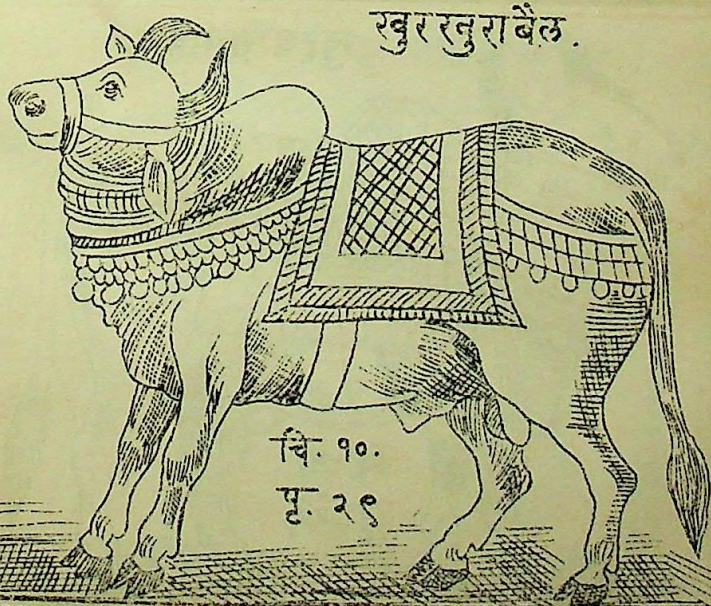 खुर खुरा बैल.
चि. १०.
पृ. २९